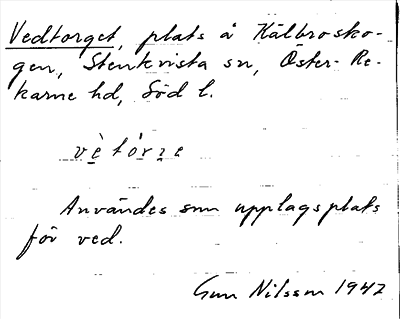 Vedtorget, plats å Kälbrosko-
gen, Stenkvista sn, Öster-Re-
karne hd, Söd l.
vètórze
Användes som upplagsplats
för ved.
Gun Nilsson 1947